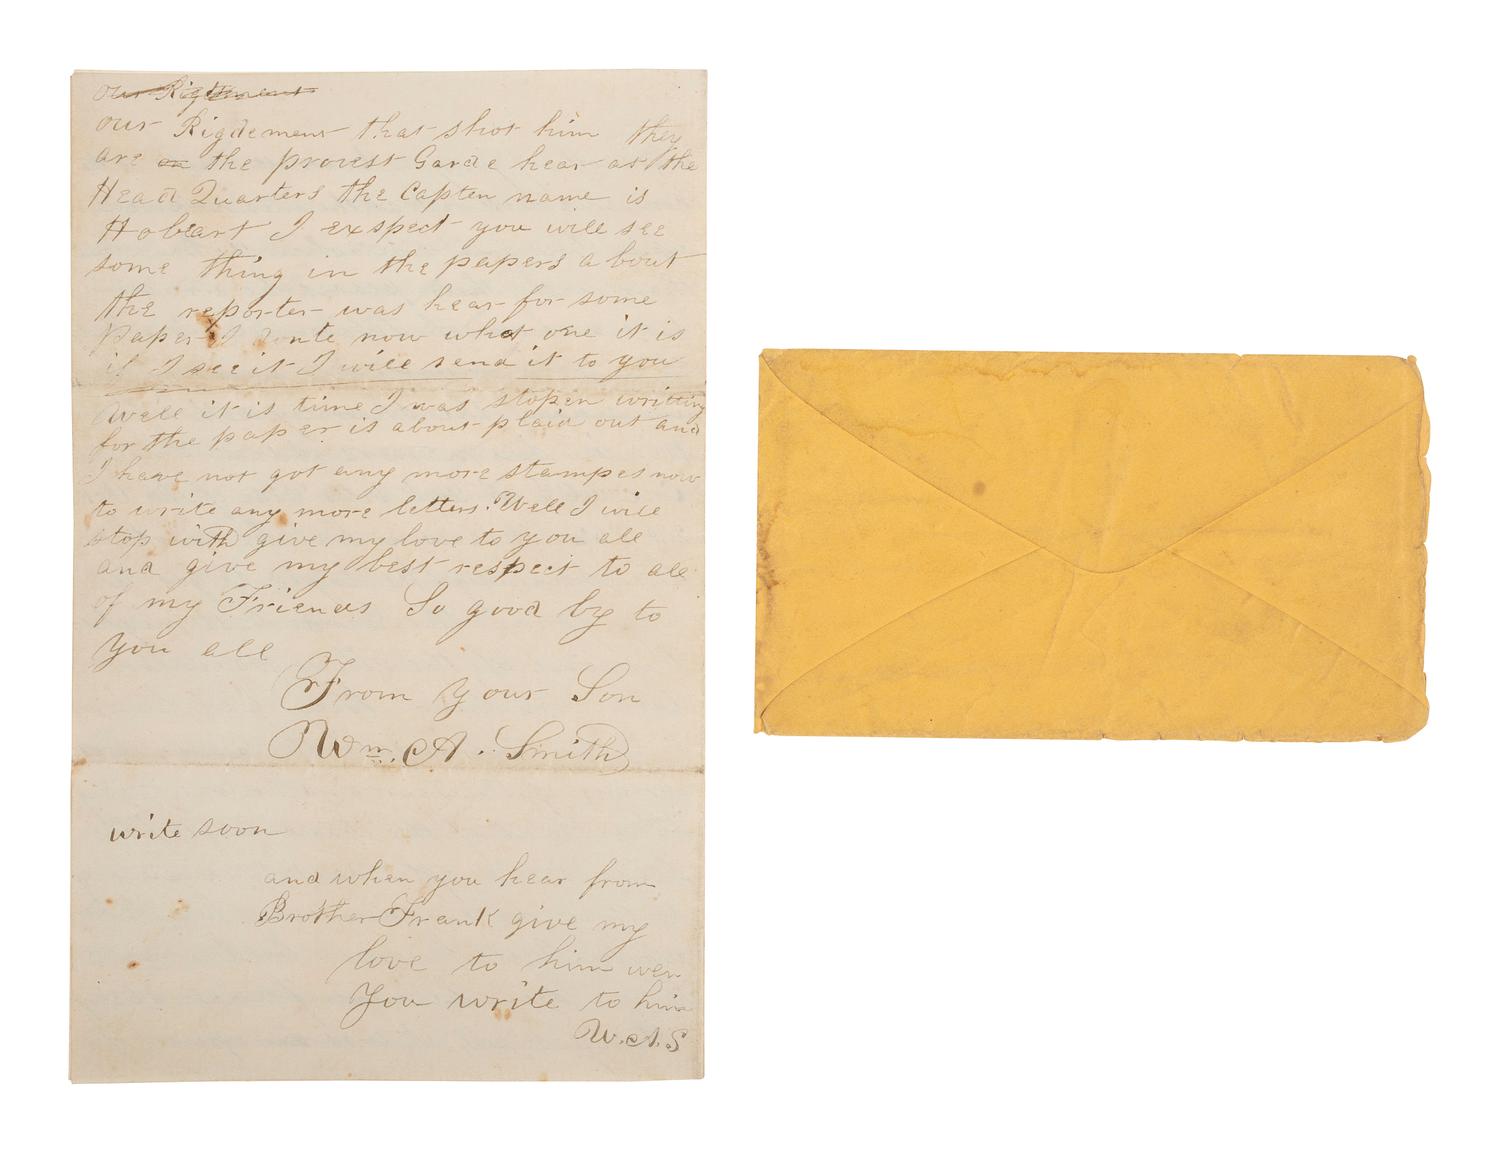 our Rigdement
our Rigdement that shot him they
are on the provest Garde hear at the
Head Quarters the Capten name is
Hobeart I exspect you will see
some thing in the papers about
the reporter was hear for some
Paper I donte now what one it is
if I see it I will send it to you
Well it is time I was stopen writting
for the paper is about plaid out and
I have not got eny more stampes now
to write any more letters. Well I will
stop with give my love to you all
and give my best respect to all
of my Friends So good by to
you all
From your Son
Wm. A. Smith
write soon
and when you hear from
Brother Frank give my
love to him wen
You write to him
W.A.S